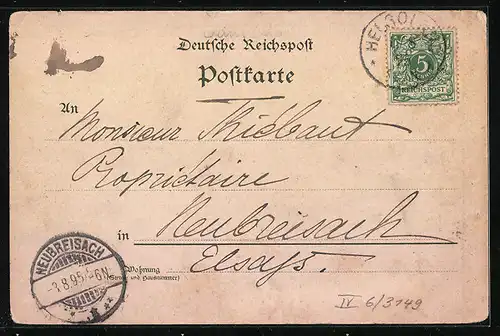 Deutsche Reichspost
HELGOL
Postkarte
5
REICHSPOST
An
Monsieur Thiébaut
Propriétaire
in Neubreisach
Elsass.
Wohnung
(Straße und Hausnummer)
NEUBREISACH
3.8.95. 5-6N.
IV 6/3149